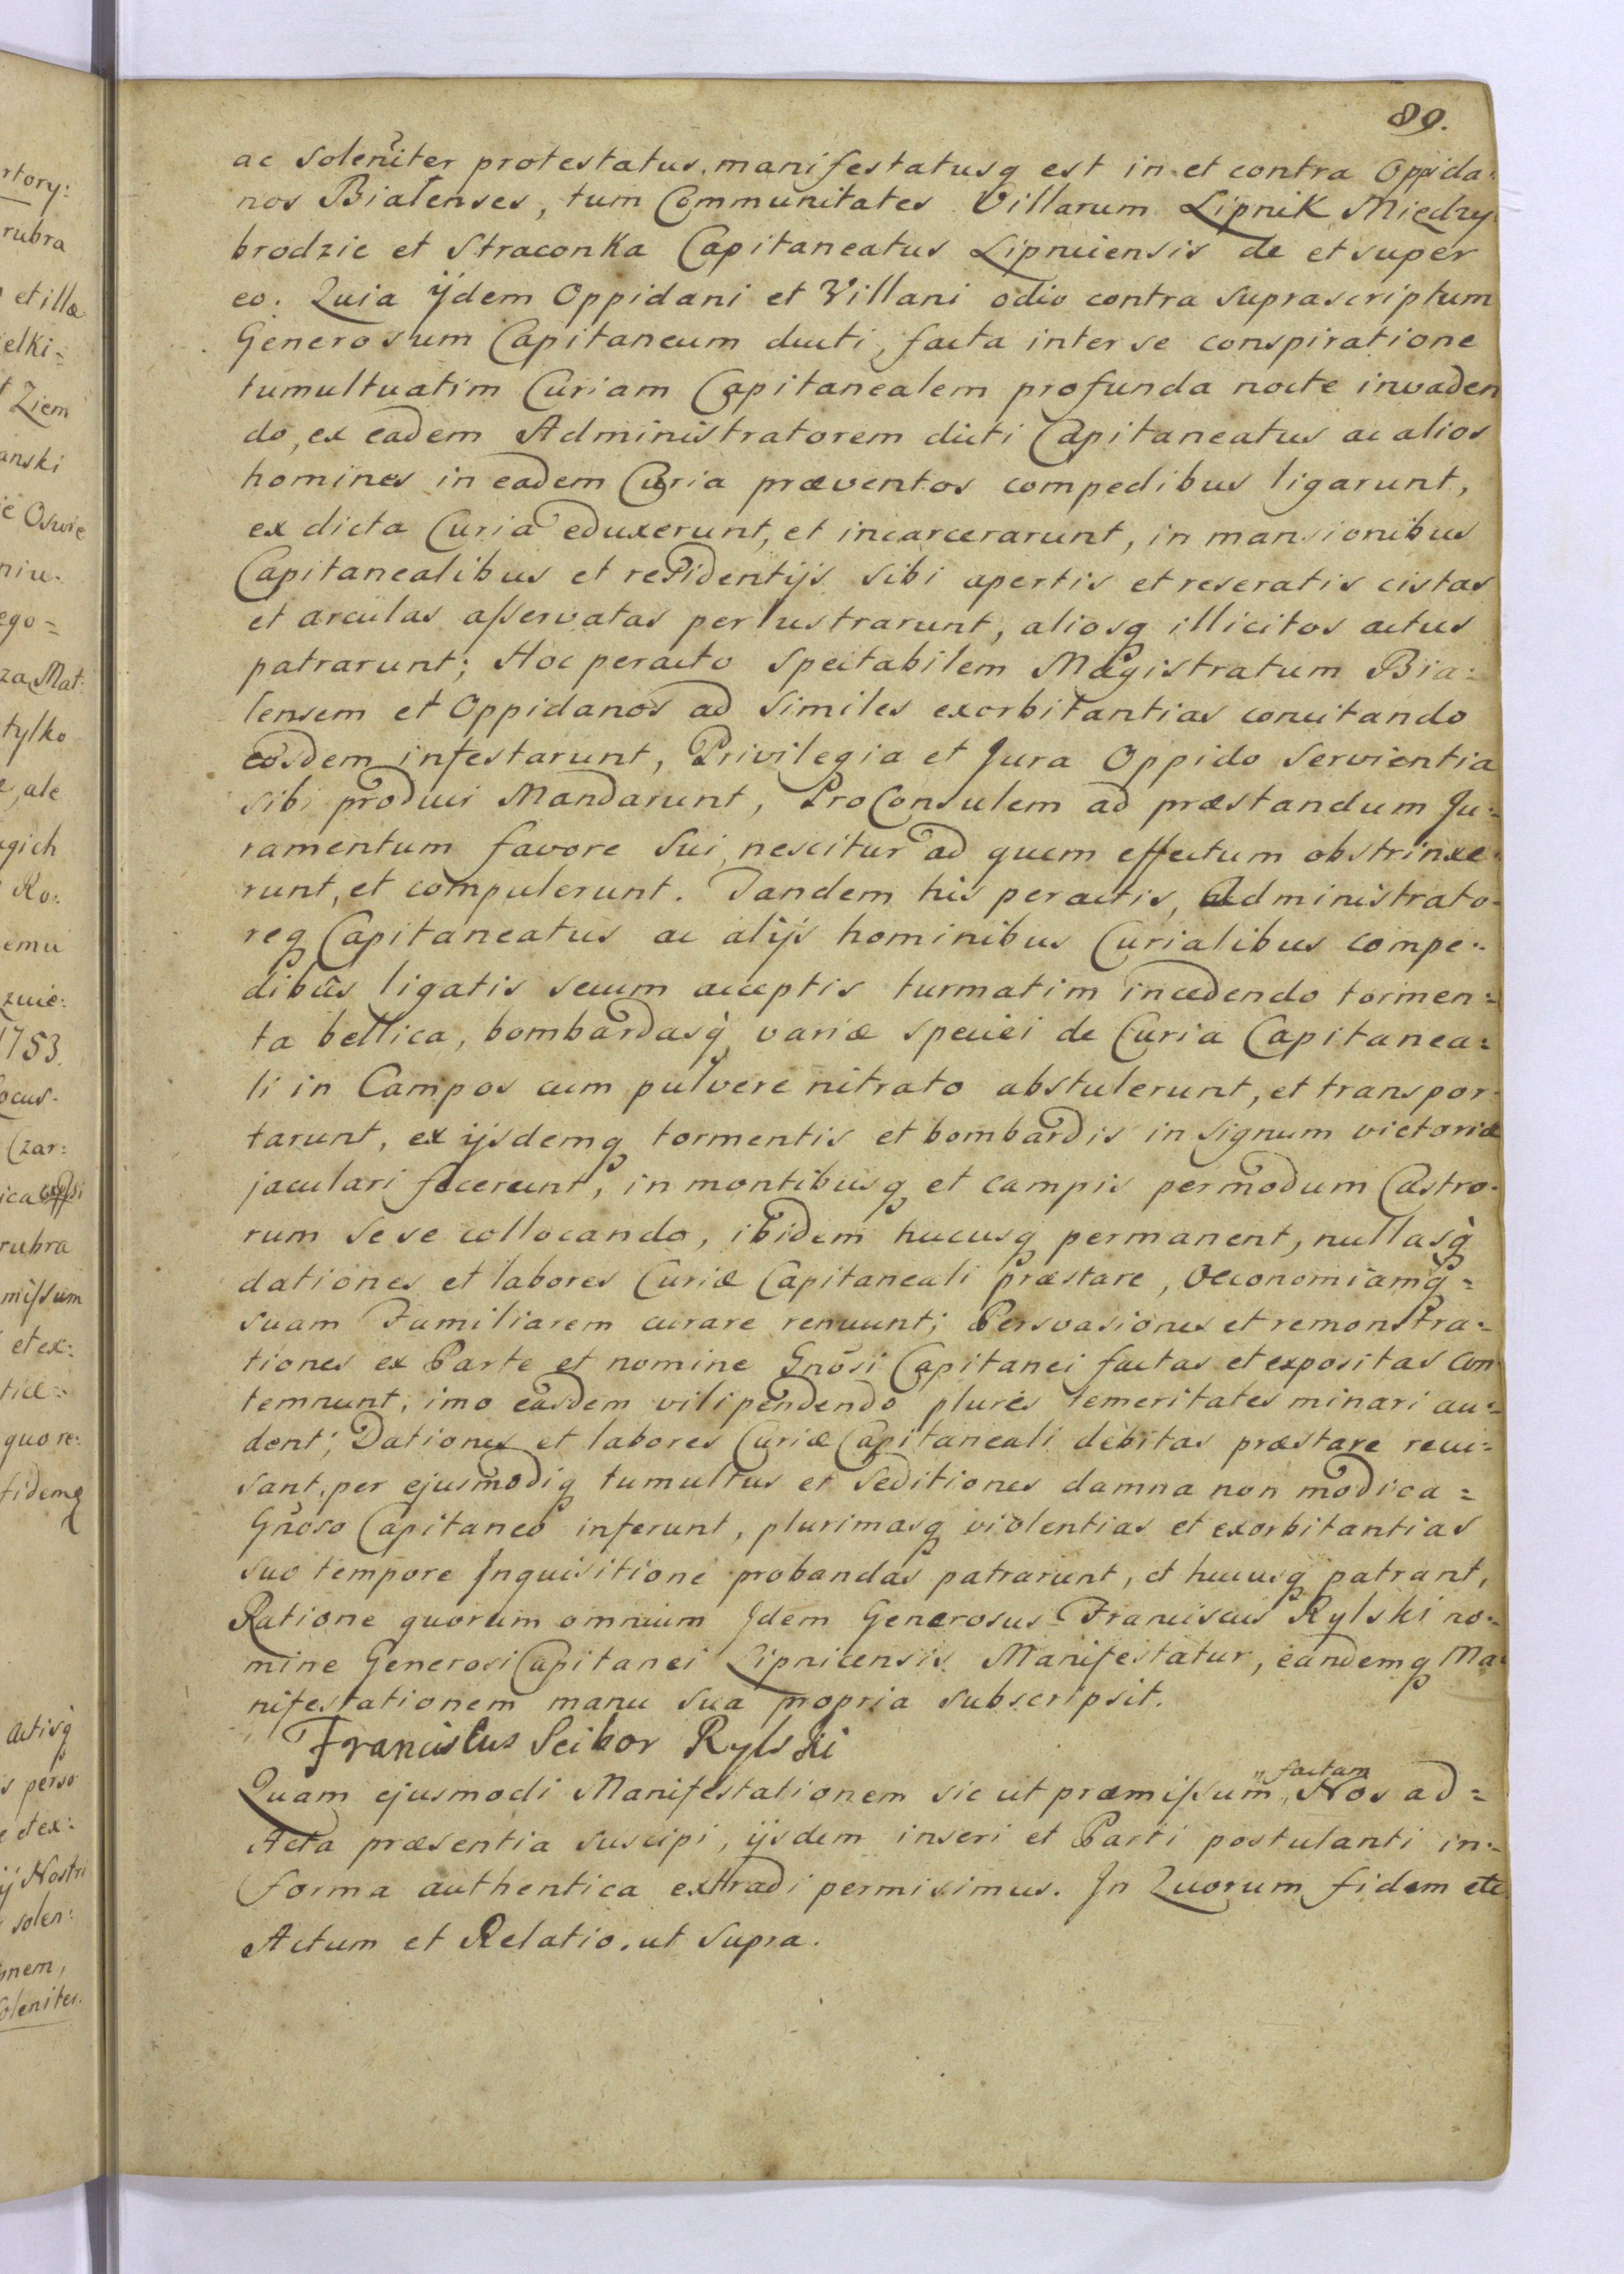 89.
ac soleniter protestatus, manifestatusq est in et contra Oppida:
nos Bialenses, tum Communitates Villarum Lipnik Miedzy
brodzie et Straconka Capitaneatus Lipnicensis de et super
eo. Quia ijdem Oppidani et Villani odio contra suprascriptum
Generosum Capitaneum ducti, facta inter se conspiratione
tumultuatim Curiam Capitanealem profunda nocte invaden
do, ex eadem Administratorem dicti Capitaneatus ac alios
homines in eadem Curia præventos compedibus ligarunt,
ex dicta Curia eduxerunt, et incarcerarunt, in mansionibus
Capitanealibus et residentijs sibi apertis et reseratis cistas
et arculas asservatas perlustrarunt, aliosq illicitos actus
patrarunt; Hoc peracto Spectabilem Magistratum Bia:
lensem et Oppidanos ad similes exorbitantias concitando
eosdem infestarunt, Privilegia et Jura Oppido servientia
sibi produci Mandarunt, ProConsulem ad præstandum Ju:
ramentum favore sui, nescitur ad quem effectum obstrinxe
runt, et compulerunt. Tandem his peractis, Administrato:
req Capitaneatus ac alijs hominibus Curialibus compe:
dibus ligatis secum acceptis turmatim incedendo tormen:
ta bellica, bombardasq variæ speciei de Curia Capitanea:
li in Campos cum pulvere nitrato abstulerunt, et transpor
tarunt, ex ijsdemq tormentis et bombardis in signum victoriæ
jaculari fecerunt, in montibusq et campis per modum Castro:
rum sese collocando, ibidem hucusq permanent, nullasq
dationes et labores Curiæ Capitaneali præstare, Oeconomiamq=
suam Familiarem curare renuunt; Persvasiones et remonstra:
tiones ex Parte et nomine Gnosi Capitanei factas et expositas con
temnunt, imo easdem vilipendendo plures temeritates minari au:
dent; Dationes et labores Curiæ Capitaneali debitas præstare recu:
sant, per ejusmodiq tumultus et seditiones damna non modica=
Gnoso Capitaneo inferunt, plurimasq violentias et exorbitantias
suo tempore Inquisitione probandas patrarunt, et hucusq patrant,
Ratione quorum omnium Idem Generosus Franciscus Rylski no:
mine Generosi Capitanei Lipnicensis Manifestatur, eandemq Ma:
nifestationem manu sua propria subscripsit.
Franciscus Scibor Rylski
Quam ejusmodi Manifestationem sic ut præmissum „factam Nos ad=
Acta præsentia suscipi, ijsdem inseri et Parti postulanti in:
forma authentica extradi permisimus. In Quorum fidem etc
Actum et Relatio. ut supra.